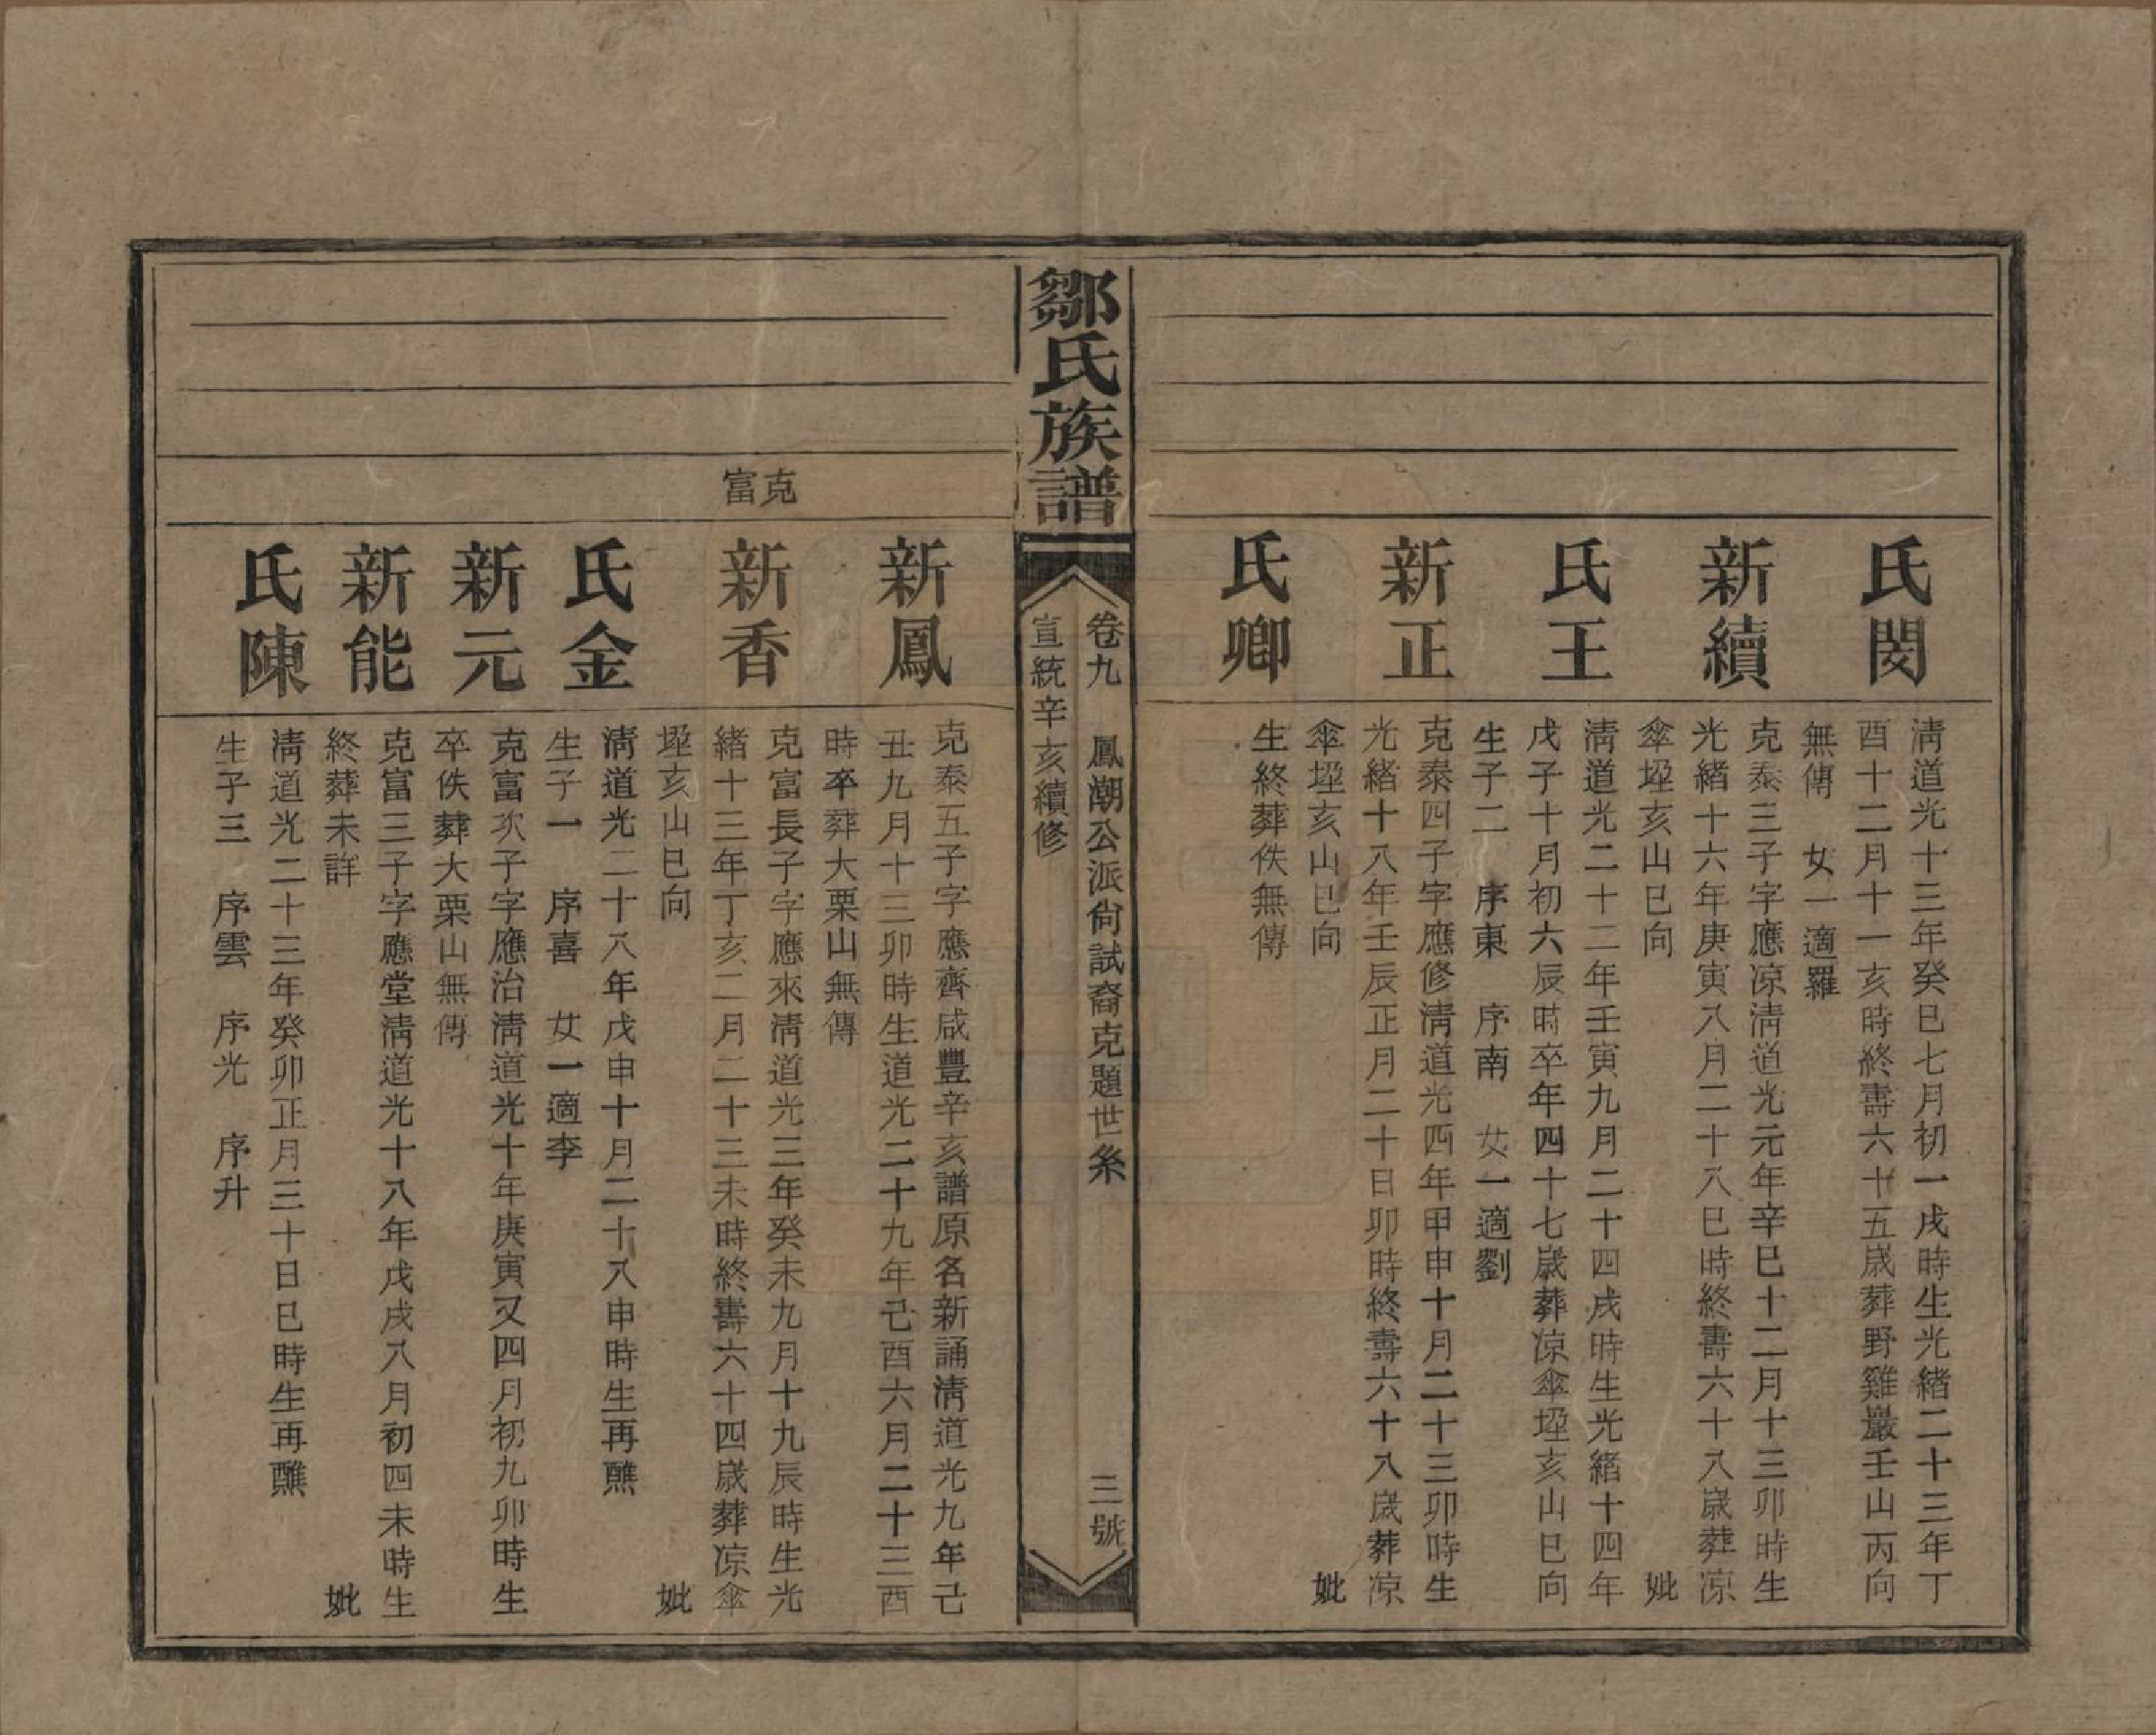 氏閔
清道光十三年癸巳七月初一戌時生光緒二十三年丁
酉十二月十一亥時終壽六十五歲葬野雞巖壬山丙向
無傳　女一適羅
新續
克泰三子字應凉清道光元年辛巳十二月十三卯時生
光緒十六年庚寅八月二十八巳時終壽六十八歲葬凉
傘埡亥山巳向　妣
氏王
清道光二十二年壬寅九月二十四戌時生光緒十四年
戊子十月初六辰時卒年四十七歲葬凉傘埡亥山巳向
生子二　序東　序南　女一適劉
新正
克泰四子字應修清道光四年甲申十月二十三卯時生
光緒十八年壬辰正月二十日卯時終壽六十八歲葬凉
傘埡亥山巳向　妣
氏卿
生終葬佚無傳
鄒氏族譜
卷九　鳳潮公派尙試裔克題世系　三號
宣統辛亥續修
新鳳
克泰五子字應齊咸豐辛亥譜原名新誦淸道光九年己
丑九月十三卯時生道光二十九年己酉六月二十三酉
時卒葬大栗山無傳
克富
新香
克富長子字應來淸道光三年癸未九月十九辰時生光
緒十三年丁亥二月二十三未時終壽六十四歲葬凉傘
埡亥山巳向　妣
氏金
淸道光二十八年戊申十月二十八申時生再醮
生子一　序喜　女一適李
新元
克富次子字應治淸道光十年庚寅又四月初九卯時生
卒佚葬大栗山無傳
新能
克富三子字應堂淸道光十八年戊戌八月初四未時生
終葬未詳　妣
氏陳
淸道光二十三年癸卯正月三十日巳時生再醮
生子三　序雲　序光　序升